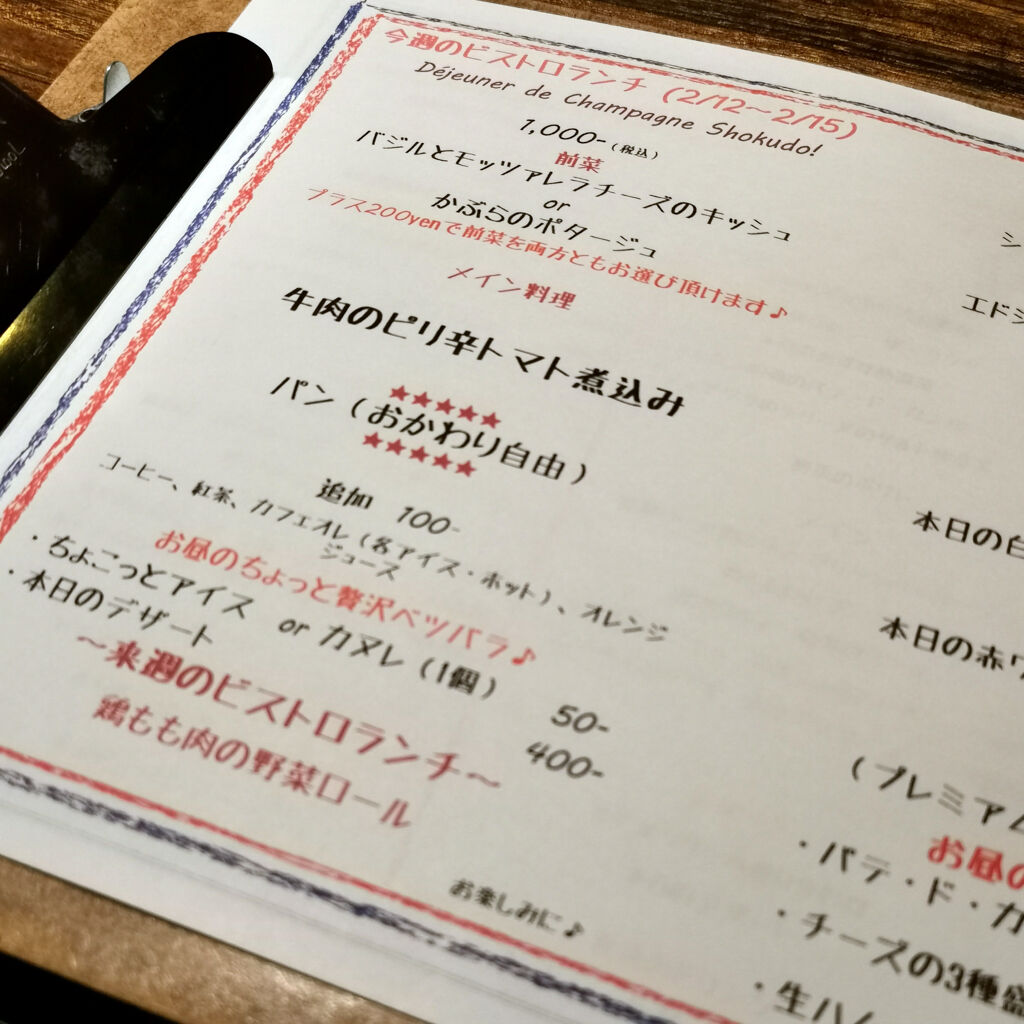 今週のビストロランチ（2/12～2/15）
Déjeuner de Champagne Shokudo!
1,000-（税込）
前菜
バジルとモッツァレラチーズのキッシュ
or
かぶらのポタージュ
プラス200yenで前菜を両方ともお選び頂けます♪
メイン料理
牛肉のピリ辛トマト煮込み
★★★★★
パン（おかわり自由）
★★★★★
追加 100-
コーヒー、紅茶、カフェオレ（各アイス・ホット）、オレンジ
ジュース
お昼のちょっと贅沢ベツバラ♪
・ちょこっとアイス or カヌレ（1個） 50-
・本日のデザート 400-
～来週のビストロランチ～
鶏もも肉の野菜ロール
お楽しみに♪
シ
エドシ
本日の白
本日の赤ワ
（プレミアム
お昼の
・パテ・ド・カ
・チーズの3種盛
・生ハム